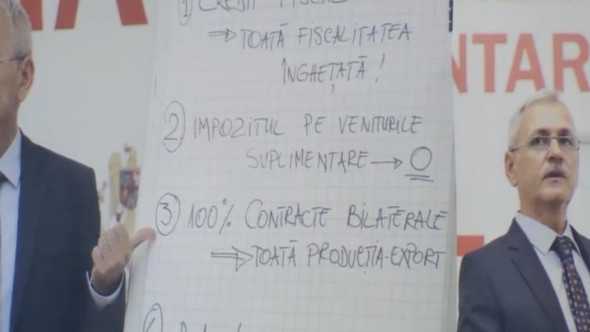 ① CREDIT FISCAL
⇒ TOATĂ FISCALITATEA
ÎNGHEȚATĂ!
② IMPOZITUL PE VENITURILE
SUPLIMENTARE → O
③ 100% CONTRACTE BILATERALE
⇒ TOATĂ PRODUCȚIA-EXPORT
NTAR